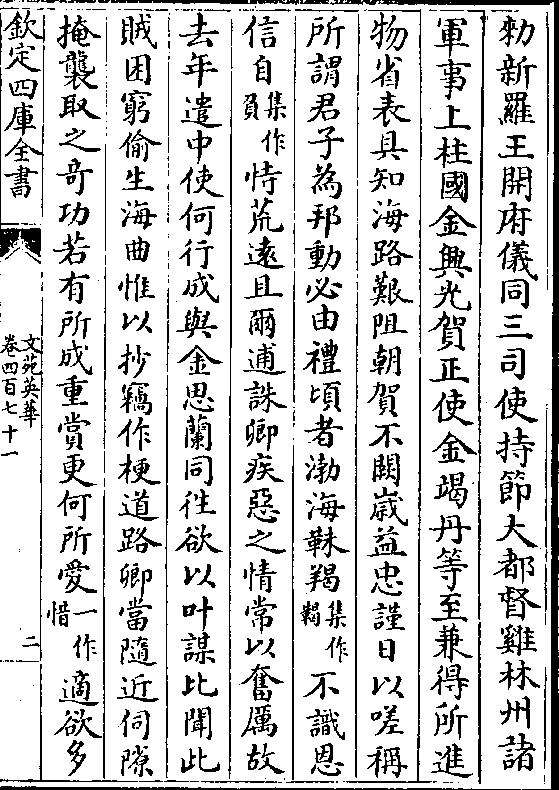 勑新羅王開府儀同三司使持節大都督雞林州諸
軍事上柱國金興光賀正使金碣丹等至兼得所進
物省表具知海路艱阻朝賀不闕嵗益忠謹日以嗟稱
所謂君子為邦動必由禮頃者渤海靺羯集作鞨不識恩
信自集作負恃荒遠且爾逋誅卿疾惡之情常以奮厲故
去年遣中使何行成與金思蘭同徃欲以叶謀比聞此
賊困窮偷生海曲惟以抄竊作梗道路卿當隨近伺隙
掩襲取之竒功若有所成重賞更何所愛一作惜適欲多
欽定四庫全書
文苑英華
卷四百七十一
二